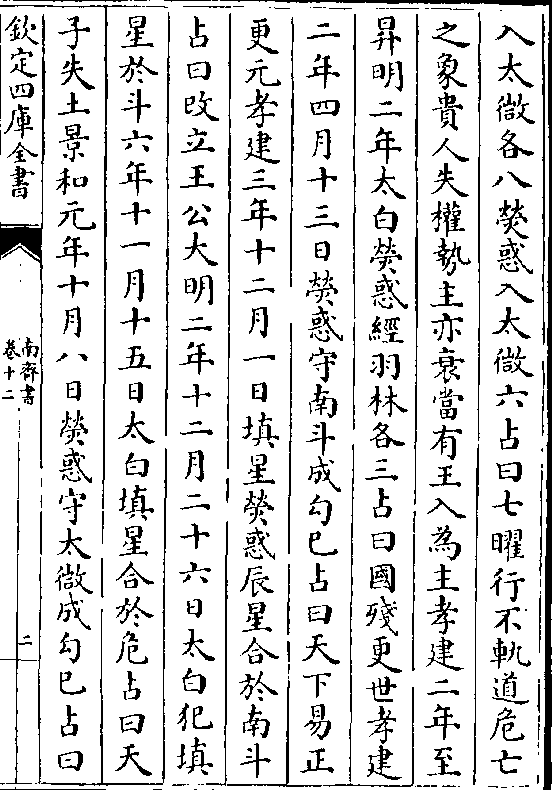 入太㣲各八熒惑入太㣲六占曰七曜行不軌道危亡
之象貴人失權勢主亦衰當有王入為主孝建二年至
昇明二年太白熒惑經羽林各三占曰國殘更世孝建
二年四月十三日熒惑守南斗成勾巳占曰天下易正
更元孝建三年十二月一日填星熒惑辰星合於南斗
占曰改立王公大明二年十二月二十六日太白犯填
星於斗六年十一月十五日太白填星合於危占曰天
子失土景和元年十月八日熒惑守太㣲成勾巳占曰
欽定四庫全書
南齊書
卷十二
二